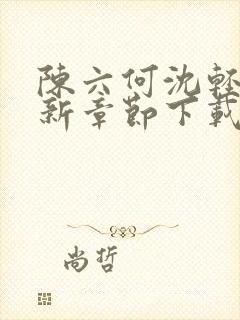 陳六何沈輕
新章節下載
尚哲